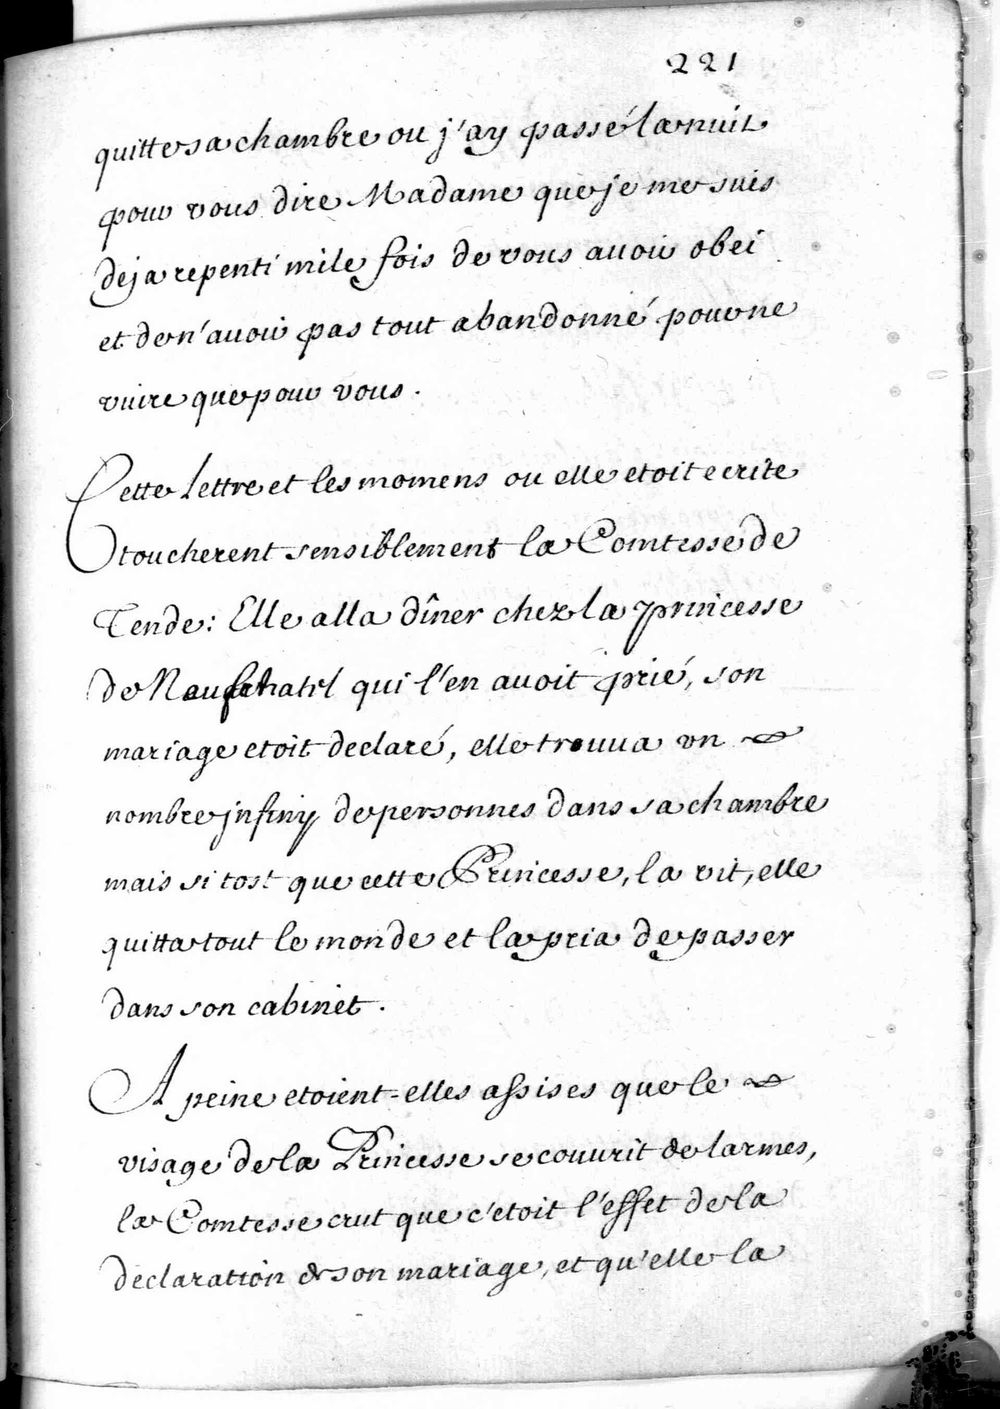 221
quitte sa chambre ou j'ay passé la nuit
pour vous dire Madame que je me suis
deja repenti mile fois de vous avoir obei
et de n'avoir pas tout abandonné pour ne
vivre que pour vous.
Cette Lettre et les momens ou elle etoit ecrite
toucherent sensiblement la Comtesse de
Tende: Elle alla dîner chez la princesse
de Neufchatel qui l'en avoit prié, son
mariage etoit declaré, elle trouva un
nombre jnfiny de personnes dans sa chambre
mais si tost que cette Princesse, la vit, elle
quitta tout le monde et la pria de passer
dans son cabinet.
A peine etoient-elles assises que le
visage de la Princesse se couvrit de larmes,
la Comtesse crut que c'etoit l'effet de la
declaration de son mariage, et qu'elle la